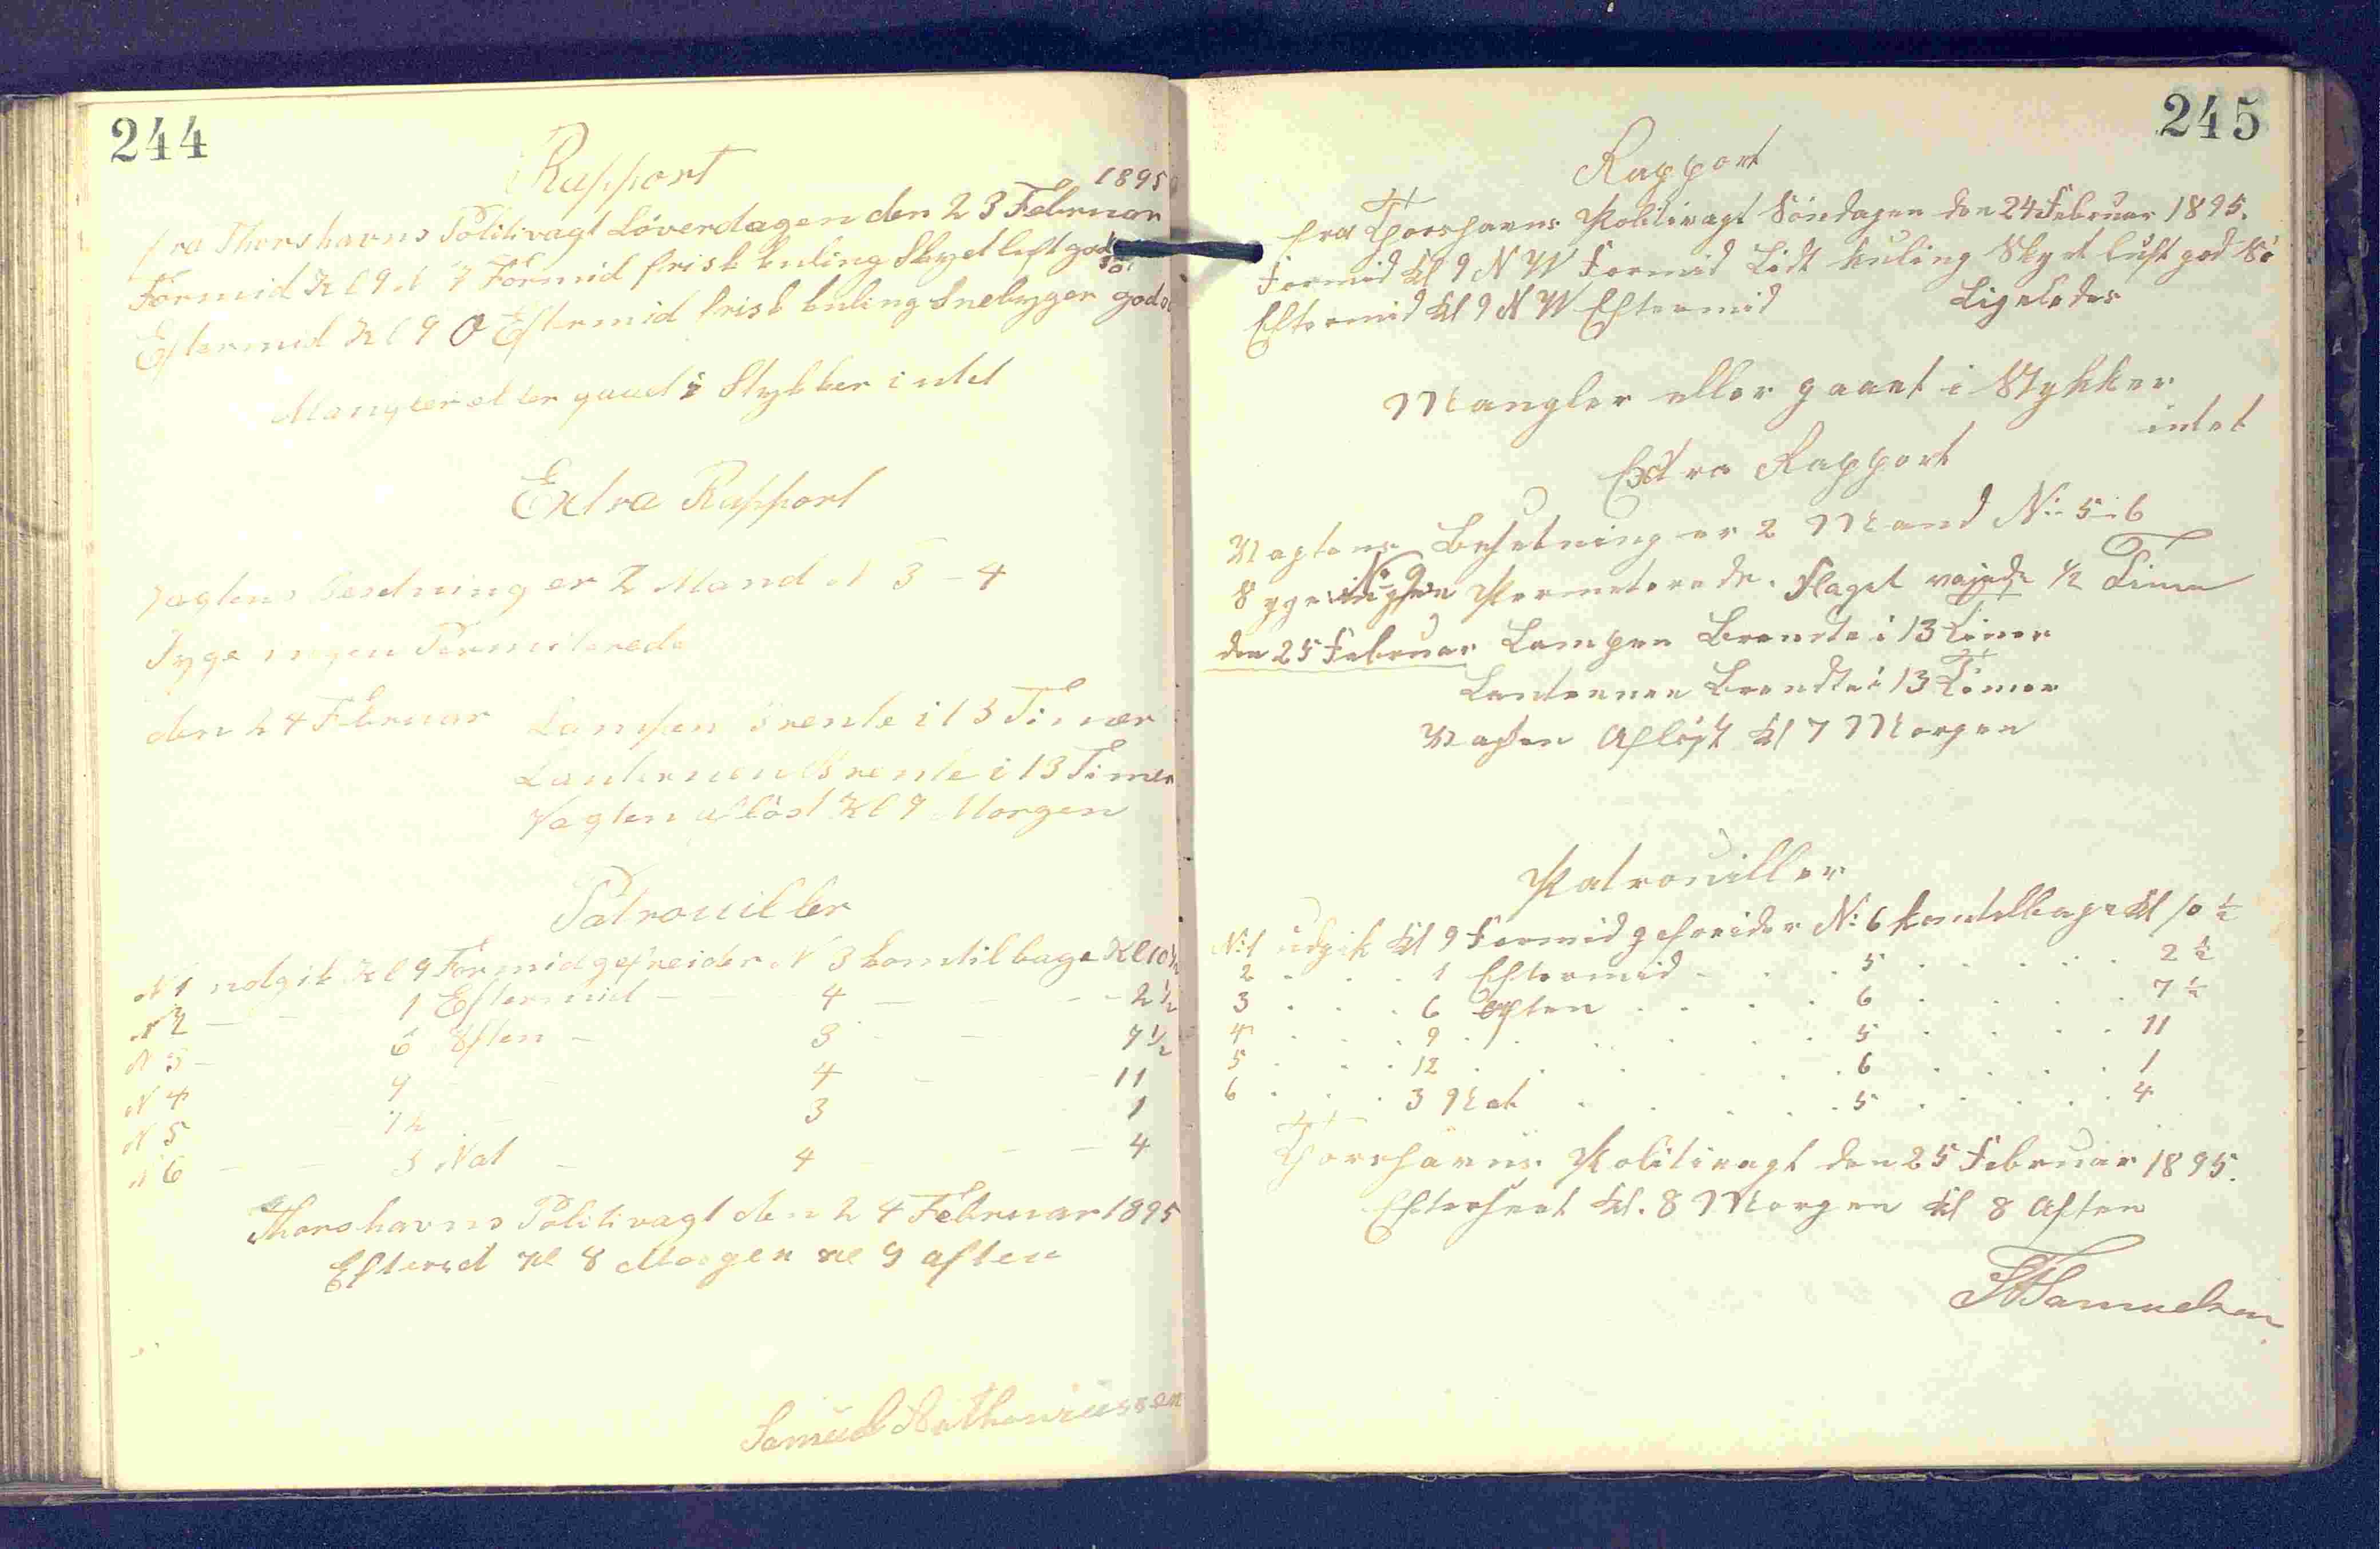 244
Rapport
1895
fra Thorshavns Politivagt Löverdagen den 23 Februar
Formid Kl 9 Formid frisk kuling Skyet luft god
Sö
Eftermid Kl 9 O Eftermid frisk kuling Snebyger god
Mangler eller gaaed i Stykker intet
Extra Rapport
Vagtens Besetning er 2 Mand N 3 - 4
Syge ingen Permiterede
den 24 Februar Lampen Brente i 13 Timer
Lanternen Brente i 13 Timer
Vagten aflöst Kl 7 Morgen
Patrouiller
N 1 udgik Kl 9 Formid gefreider N 3 kom tilbage Kl 10 1/2
N 2 — — 1 Eftermid — — 4 — — — 2 1/2
N 3 — 6 Aften — 3 — — 7 1/2
N 4 9 — — 4 — — 11
N 5 — 12 — 3 1
N 6 — — 3 Nat — 4 — — — 4
Thorshavns Politivagt den 24 Februar 1895
Efterset Kl 8 Morgen Kl 9 aften
Samuel
245
Rapport
fra Thorshavns Politivagt Söndagen den 24 Februar 1895.
Formid Kl 9 N W Formid Lidt kuling Skyet luft god Sö
Eftermid Kl 9 N W Eftermid Ligeledes
Mangler eller gaaet i Stykker
intet
Extra Rapport
Vagtens Besetning er 2 Mand No 5-6
Syge No 9 Permeterede. Flaget vajede 1/2 Time
den 25 Februar Lampen Brendte i 13 Timer
Lanternen Brendte i 13 Timer
Vagten Aflöst Kl 7 Morgen
Patrouiller
No 1 udgik Kl 9 Formid gefreider No 6 kom tilbage Kl 10 1/2
2 . . . 1 Eftermid . . . 5 . . . . . 2 1/2
3 . . . 6 Aften . . . . 6 . . . . . 7 1/2
4 . . . 9 . . . . . . 5 . . . . . 11
5 . . . 12 . . . . . . 6 . . . . . 1
6 . . . 3 Nat . . . . . 5 . . . . . 4
Thorshavns Politivagt den 25 Februar 1895.
Efterseet Kl. 8 Morgen Kl 8 Aften
Samuelsen